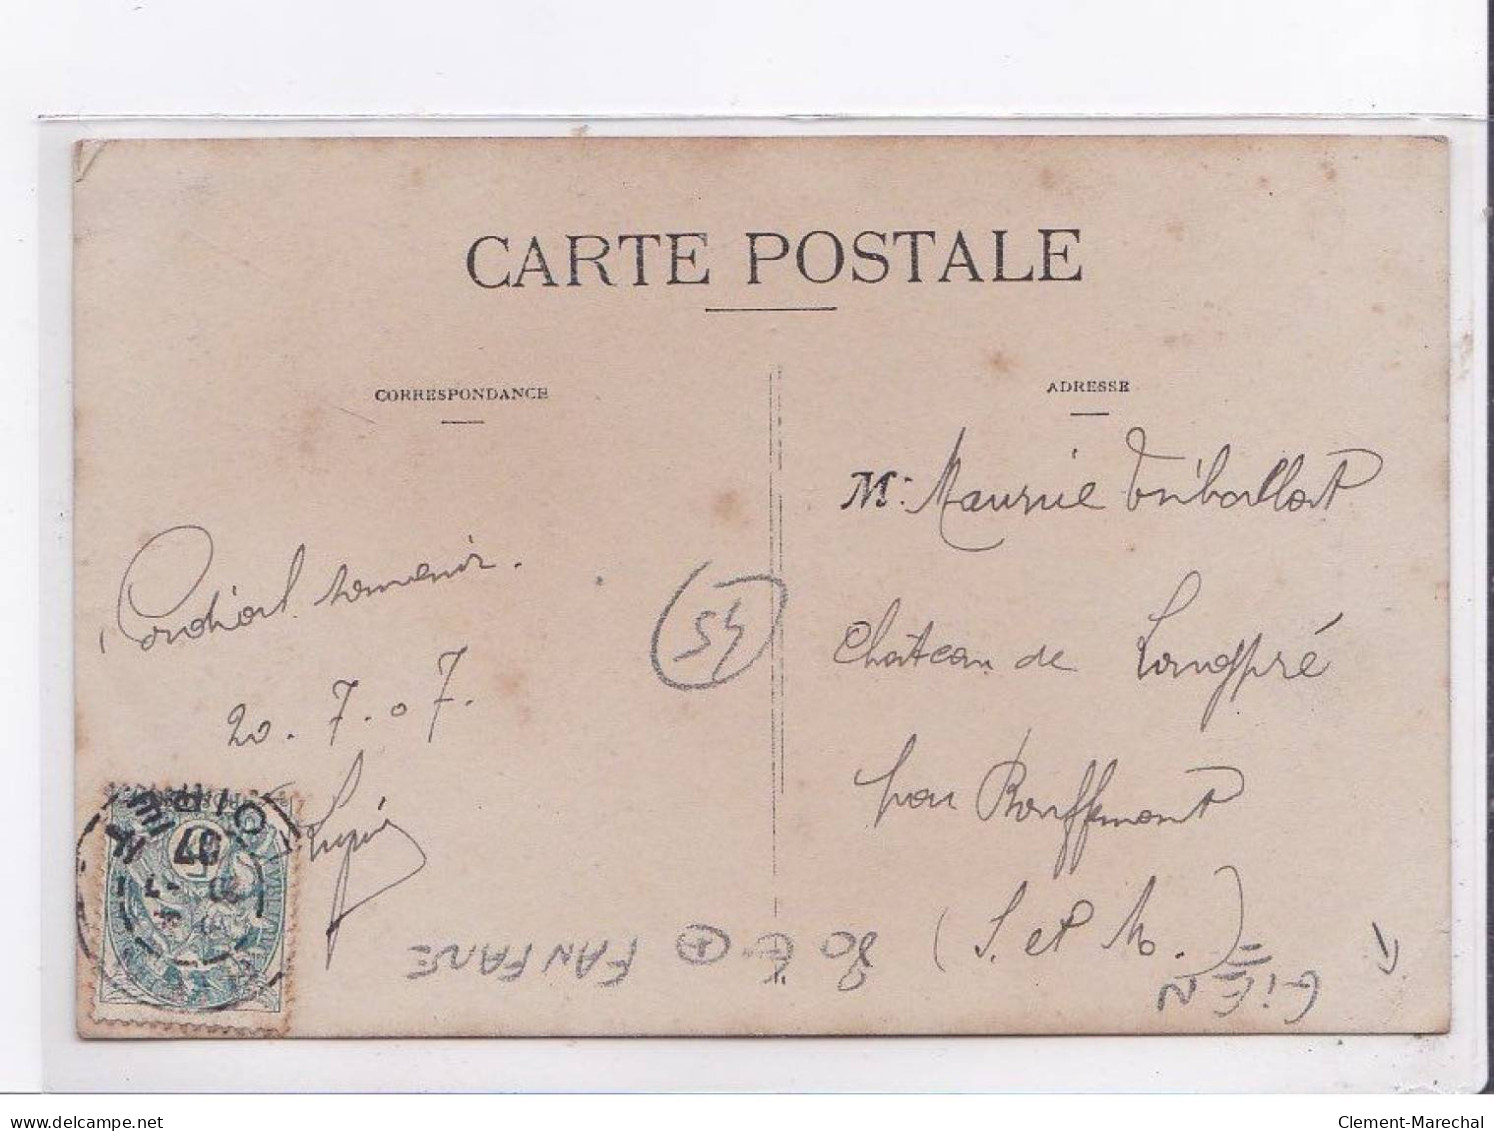 CARTE POSTALE
CORRESPONDANCE
ADRESSE
Mr Maurice Triballat
Château de Longpré
par Rouffemont
(S. et M.)
Cordial souvenir.
20.7.07.
54
LOIRET
07
80 € FANFARE
GIEN
www.delcampe.net
Clement-Marechal